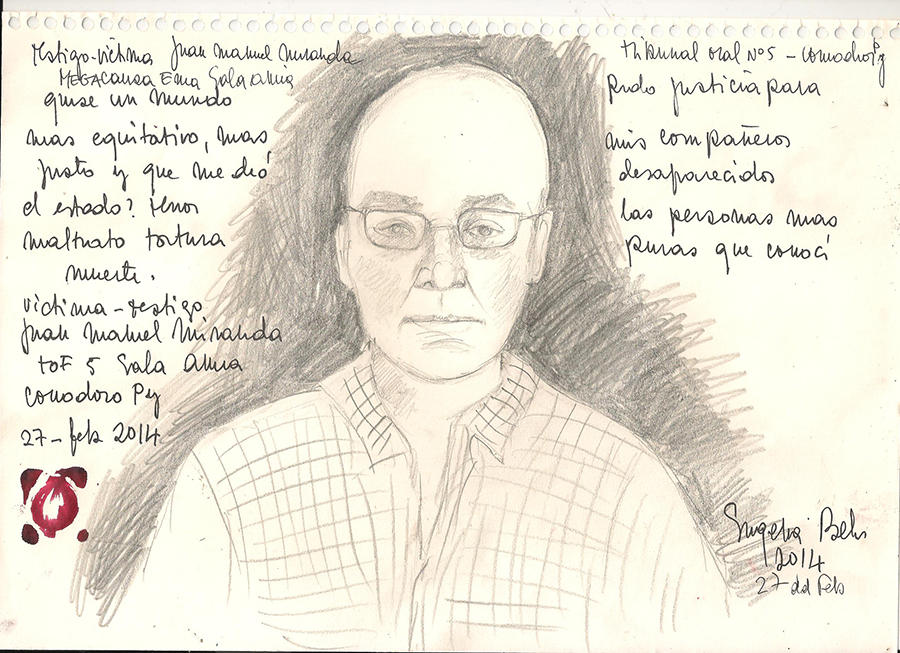 Testigo-víctima Juan Manuel Miranda
MEGACAUSA Esma Sala AMIA
quise un mundo
mas equitativo, mas
justo y que me dió
el estado? terror
maltrato tortura
muerte.
víctima-testigo
Juan Manuel Miranda
TOF 5 Sala AMIA
Comodoro Py
27-feb 2014
Tribunal oral Nº5 - Comodoro Py
Pido justicia para
mis compañeros
desaparecidos
las personas mas
puras que conocí
Eugenia Bekeris
2014
27 del Feb